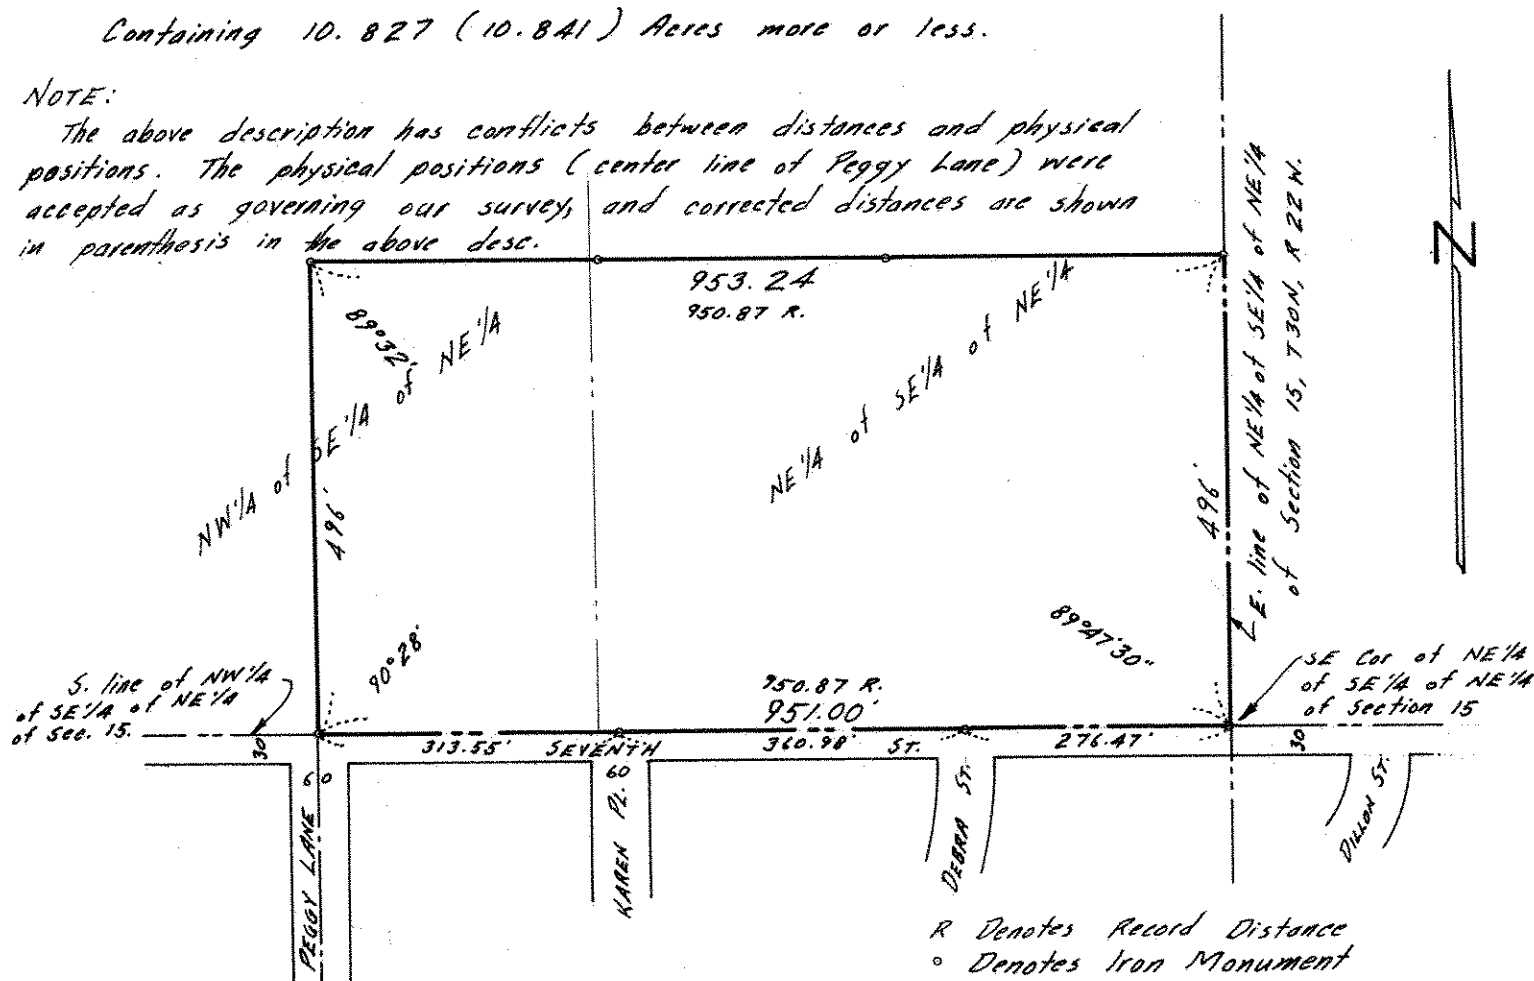 Containing 10.827 (10.841) Acres more or less.
NOTE:
The above description has conflicts between distances and physical
positions. The physical positions (center line of Peggy Lane) were
accepted as governing our survey, and corrected distances are shown
in parenthesis in the above desc.
953.24
950.87 R.
89°32'
NW 1/4 of SE 1/4 of NE 1/4
NE 1/4 of SE 1/4 of NE 1/4
E. line of NE 1/4 of SE 1/4 of NE 1/4
of Section 15, T30N, R 22 W.
N
496'
496'
90°28'
89°47'30"
S. line of NW 1/4
of SE 1/4 of NE 1/4
of Sec. 15.
SE Cor of NE 1/4
of SE 1/4 of NE 1/4
of Section 15
950.87 R.
951.00'
30'
313.55'
SEVENTH
360.98'
ST.
276.47'
30'
60
60
PEGGY LANE
KAREN PL.
DEBRA ST.
DILLON ST.
R Denotes Record Distance
o Denotes Iron Monument